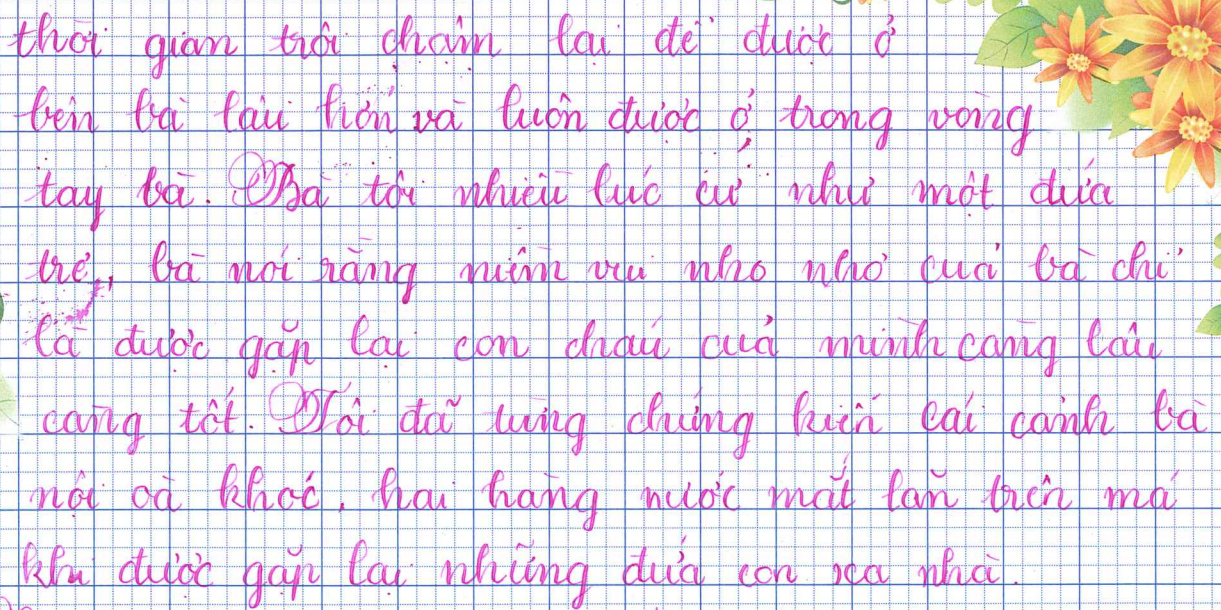 thời gian trôi chậm lại để được ở
bên bà lâu hơn và luôn được ở trong vòng
tay bà. Bà tôi nhiều lúc cứ như một đứa
trẻ, bà nói rằng niềm vui nho nhỏ của bà chỉ
là được gặp lại con cháu của mình càng lâu
càng tốt. Tôi đã từng chứng kiến cái cảnh bà
nội oà khóc, hai hàng nước mắt lăn trên má
khi được gặp lại những đứa con xa nhà.